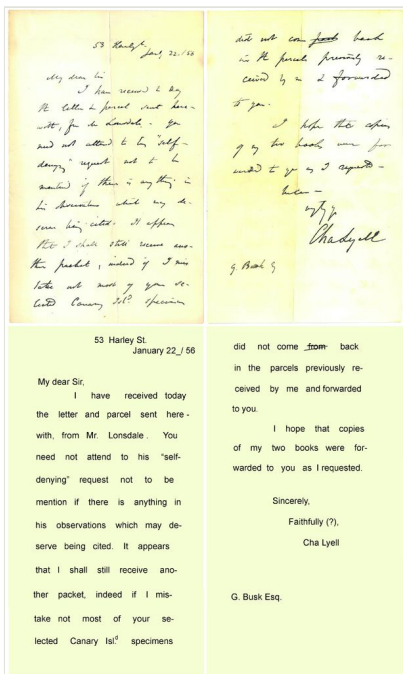 53 Harley St.
Jany 22_/56
My dear Sir
I have received to day
the letter & parcel sent here-
with, from Mr Lonsdale. You
need not attend to his "self-
denying" request not to be
mentioned if there is any thing in
his observations which may de-
serve being cited. It appears
that I shall still receive ano-
ther packet, indeed if I mis
take not most of your se-
lected Canary Isld specimens
did not come from back
in the parcels previously re-
ceived by me & forwarded
to you.
I hope that copies
of my two books were for
warded to you as I requested-
ChaLyell
G. Busk
53 Harley St.
January 22_/ 56
My dear Sir,
I have received today
the letter and parcel sent here -
with, from Mr. Lonsdale . You
need not attend to his “self-
denying” request not to be
mention if there is anything in
his observations which may de-
serve being cited. It appears
that I shall still receive ano-
ther packet, indeed if I mis-
take not most of your se-
lected Canary Isl.d specimens
did not come from back
in the parcels previously re-
ceived by me and forwarded
to you.
I hope that copies
of my two books were for-
warded to you as I requested.
Sincerely,
Faithfully (?),
Cha Lyell
G. Busk Esq.